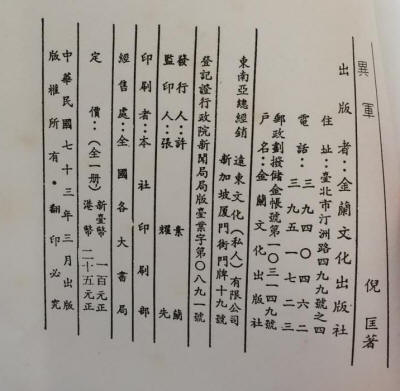 異軍
倪匡著
出版者：金蘭文化出版社
住址：臺北市汀洲路四九九號之四
電話：三九四〇四六二
三九五一七二三
郵政劃撥儲金帳號第一〇三一四九號
戶名：金蘭文化出版社
東南亞總經銷
遠東文化（私人）有限公司
新加坡厦門街門牌十九號
登記證行政院新聞局局版臺業字第〇八九一號
發行人：許素蘭
監印人：張耀先
印刷者：本社印刷部
經售處：全國各大書局
定價：（全一册）
新臺幣一百元正
港幣二十五元正
中華民國七十三年三月出版
版權所有•翻印必究